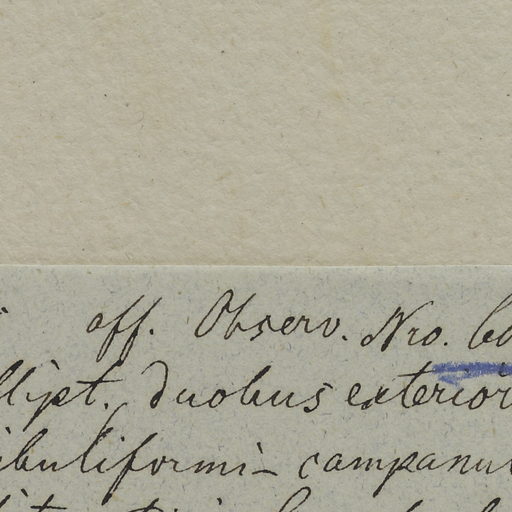 aff. Observ. Nro. 66
llipt. duobus exterior
ibuliformi- campanul